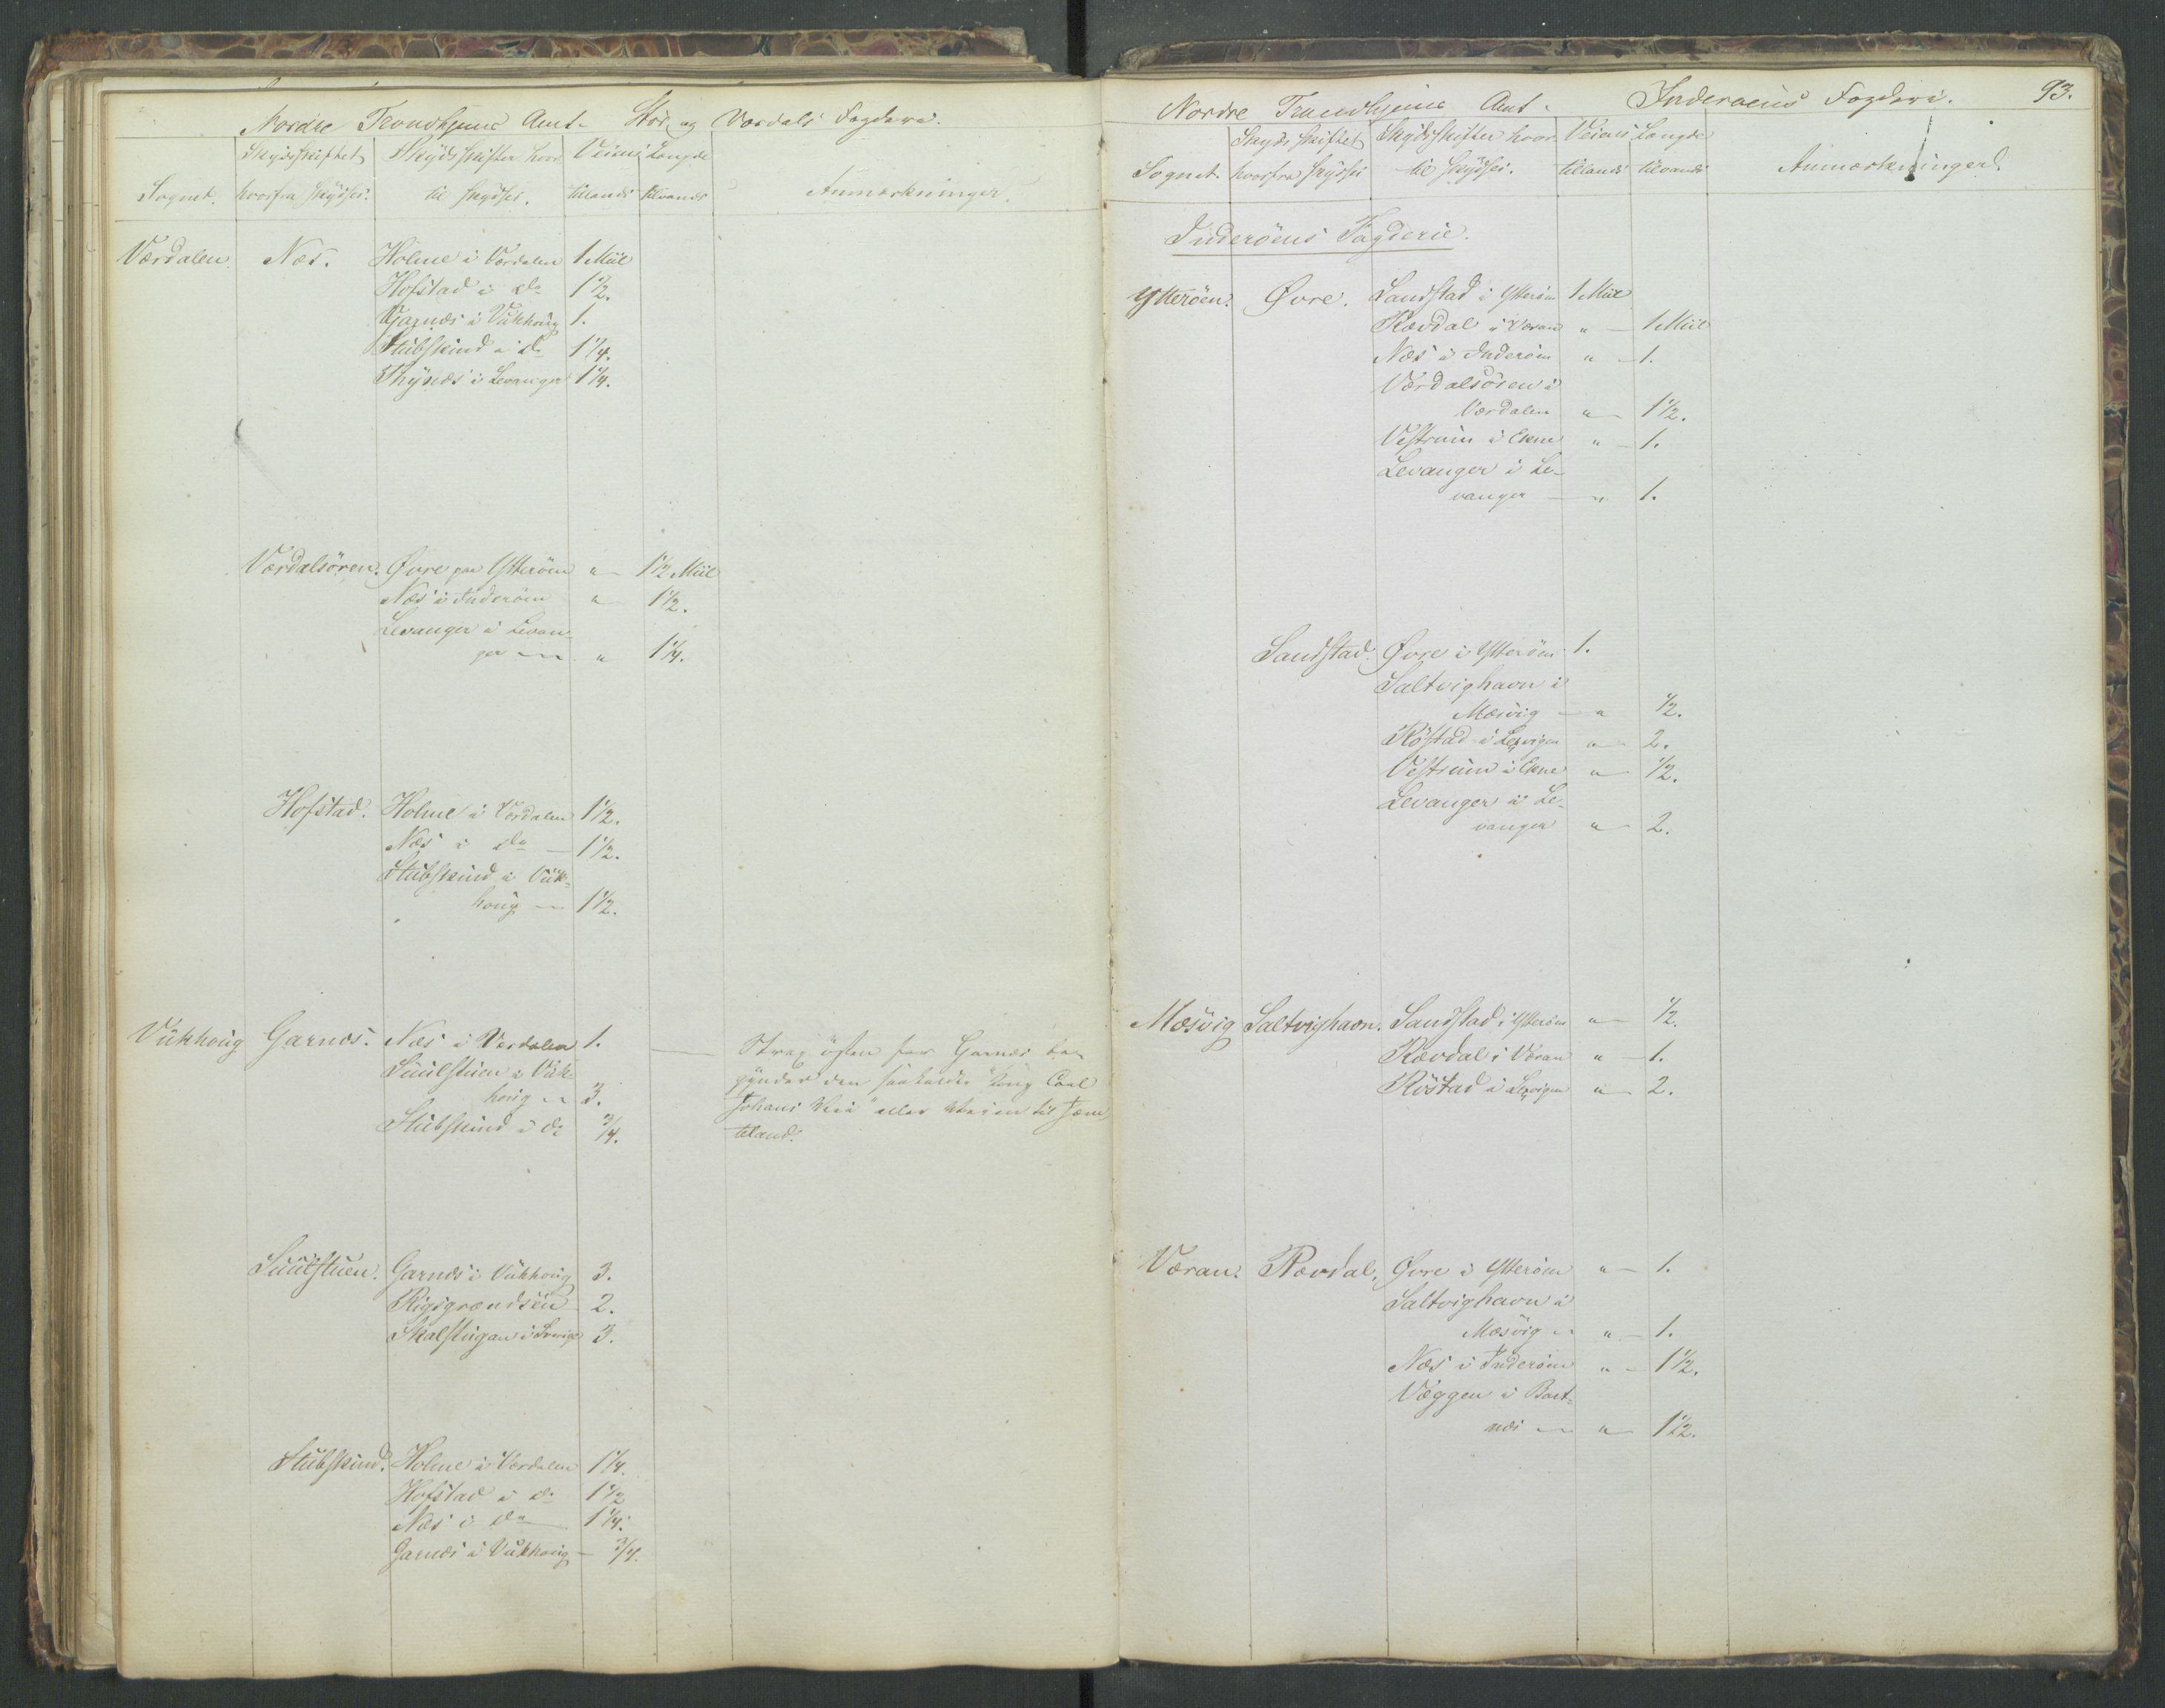 Nordre Trondhjems Amt. Stör og Værdals Fogderi.
Sognet. Skydsskiftet hvorfra skydses. Skydsskifter hvortil skydses. Veiens Længde tillands tilvands Anmærkninger.
Værdalen Næs. Holme i Værdalen 1 Miil
Hofstad i do 1 1/2.
Garnæs i Vukhoug 1.
Stubskind i do 1 1/4.
Thynæs i Levanger 1 1/4.
Værdalsören. Øvre paa Ytterøen " 1 1/2 Miil
Næs i Inderøen " 1 1/2.
Levanger i Levan-
ger " 1 1/4.
Hofstad. Holme i Værdalen 1 1/2.
Næs i do 1 1/2.
Stubskind i Vuk-
houg 1 1/2.
Vukhoug Garnæs. Næs i Værdalen 1.
Suulstuen i Vuk-
houg 3.
Stubskind i do 3/4.
Strax østen for Garnæs be-
gynder den saakaldte "Kong Carl
Johans Vei" eller Veien til Jæmt-
teland.
Suulstuen. Garnæs i Vukhoug 3.
Rigsgrændsen 2.
Skalstugan i Sverige 3.
Stubskind. Holme i Værdalen 1 1/4.
Hofstad i do 1 1/2
Næs i do 1 1/4.
Garnæs i Vukhoug 3/4.
Nordre Trondhjems Amt. Inderøens Fogderi. 93.
Sognet. Skydsskiftet hvorfra skydses Skydsskifter hvortil skydses. Veiens Længde tillands tilvands Anmærkninger.
Inderøens Fogderie.
Ytterøen. Øvre. Sandstad i Ytterøen 1 Miil
Rævdal i Væran " 1 Miil
Næs i Inderøen " 1.
Værdalsören i
Værdalen " 1 1/2.
Vestrum i Ekne " 1.
Levanger i Le-
vanger " 1.
Sandstad Øvre i Ytterøen 1.
Saltvighavn i
Mæsvig " 1/2.
Röstad i Lexvigen " 2.
Vestrum i Ekne " 1/2.
Levanger i Le-
vanger " 2.
Mæsvig Saltvighavn. Sandstad i Ytterøen " 1/2.
Rævdal i Væran " 1.
Röstad i Lexvigen " 2.
Væran. Rævdal. Øvre i Ytterøen " 1.
Saltvighavn i
Mæsvig " 1.
Næs i Inderøen " 1 1/2.
Væggen i Bart-
næs " 1 1/2.